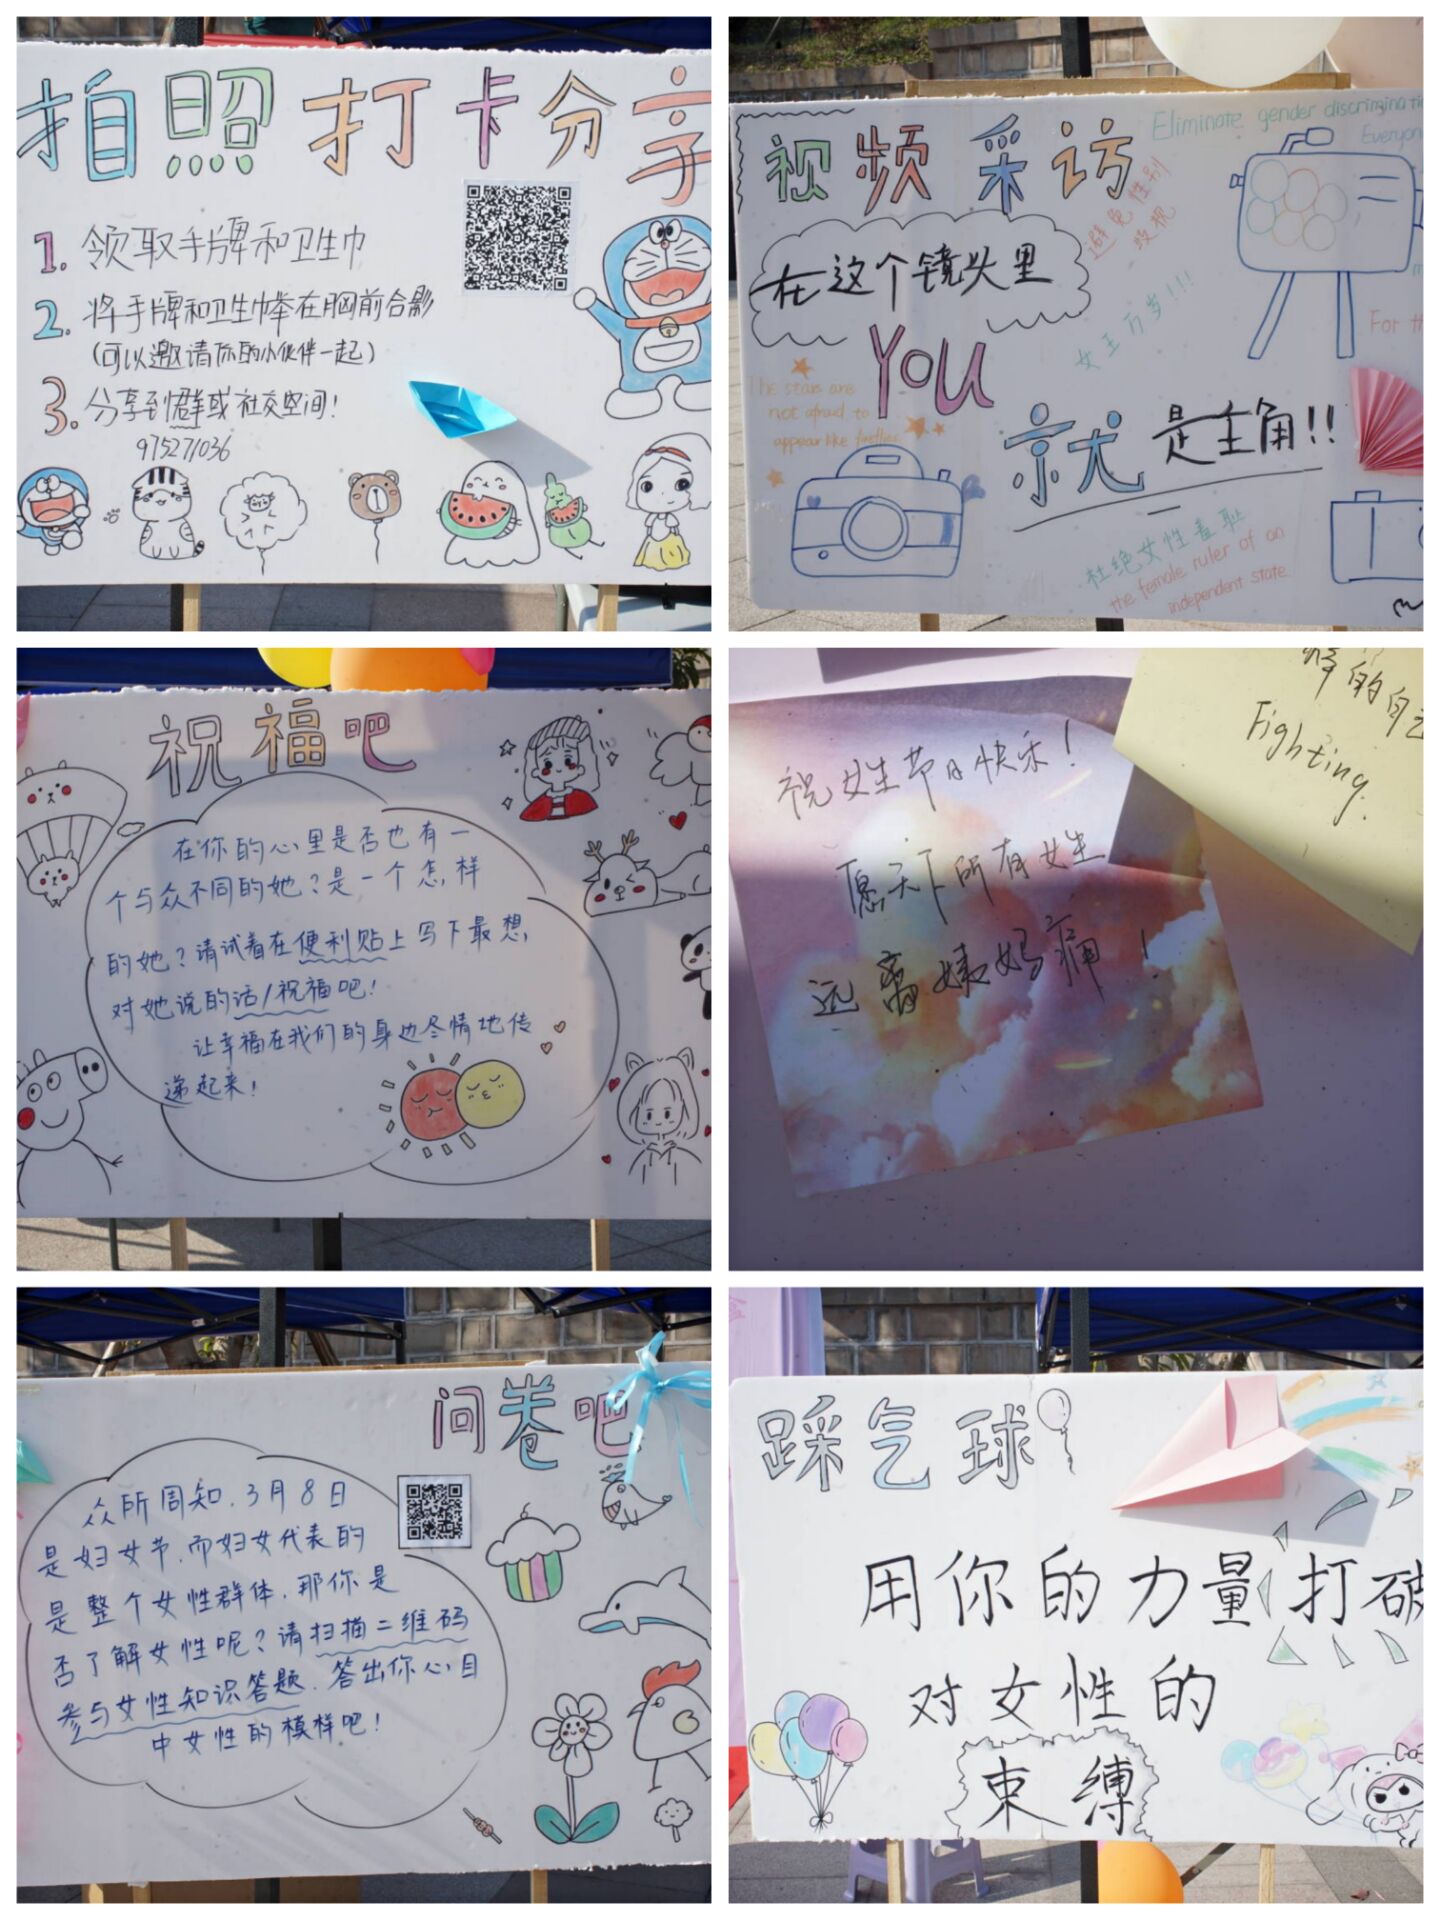 拍照打卡分享
1. 领取手牌和卫生巾
2. 将手牌和卫生巾举在胸前合影
(可以邀请你的小伙伴一起)
3. 分享到群或社交空间!
975271036
视频采访
Eliminate gender discriminati
Everyon
避免性别
歧视
在这个镜头里
女王万岁!!!
For th
YOU
The stars are
not afraid to
appear like fireflies
就是主角!!
杜绝女性羞耻
the female ruler of an
independent state
祝福吧
在你的心里是否也有一
个与众不同的她?是一个怎样
的她?请试着在便利贴上写下最想
对她说的话/祝福吧!
让幸福在我们的身边尽情地传
递起来!
祝女生节日快乐!
愿天下所有女生
远离姨妈痛!
的自己
Fighting.
问卷吧
众所周知,3月8日
是妇女节,而妇女代表的
是整个女性群体,那你是
否了解女性呢?请扫描二维码
参与女性知识答题,答出你心目
中女性的模样吧!
踩气球
用你的力量打破
对女性的
束缚